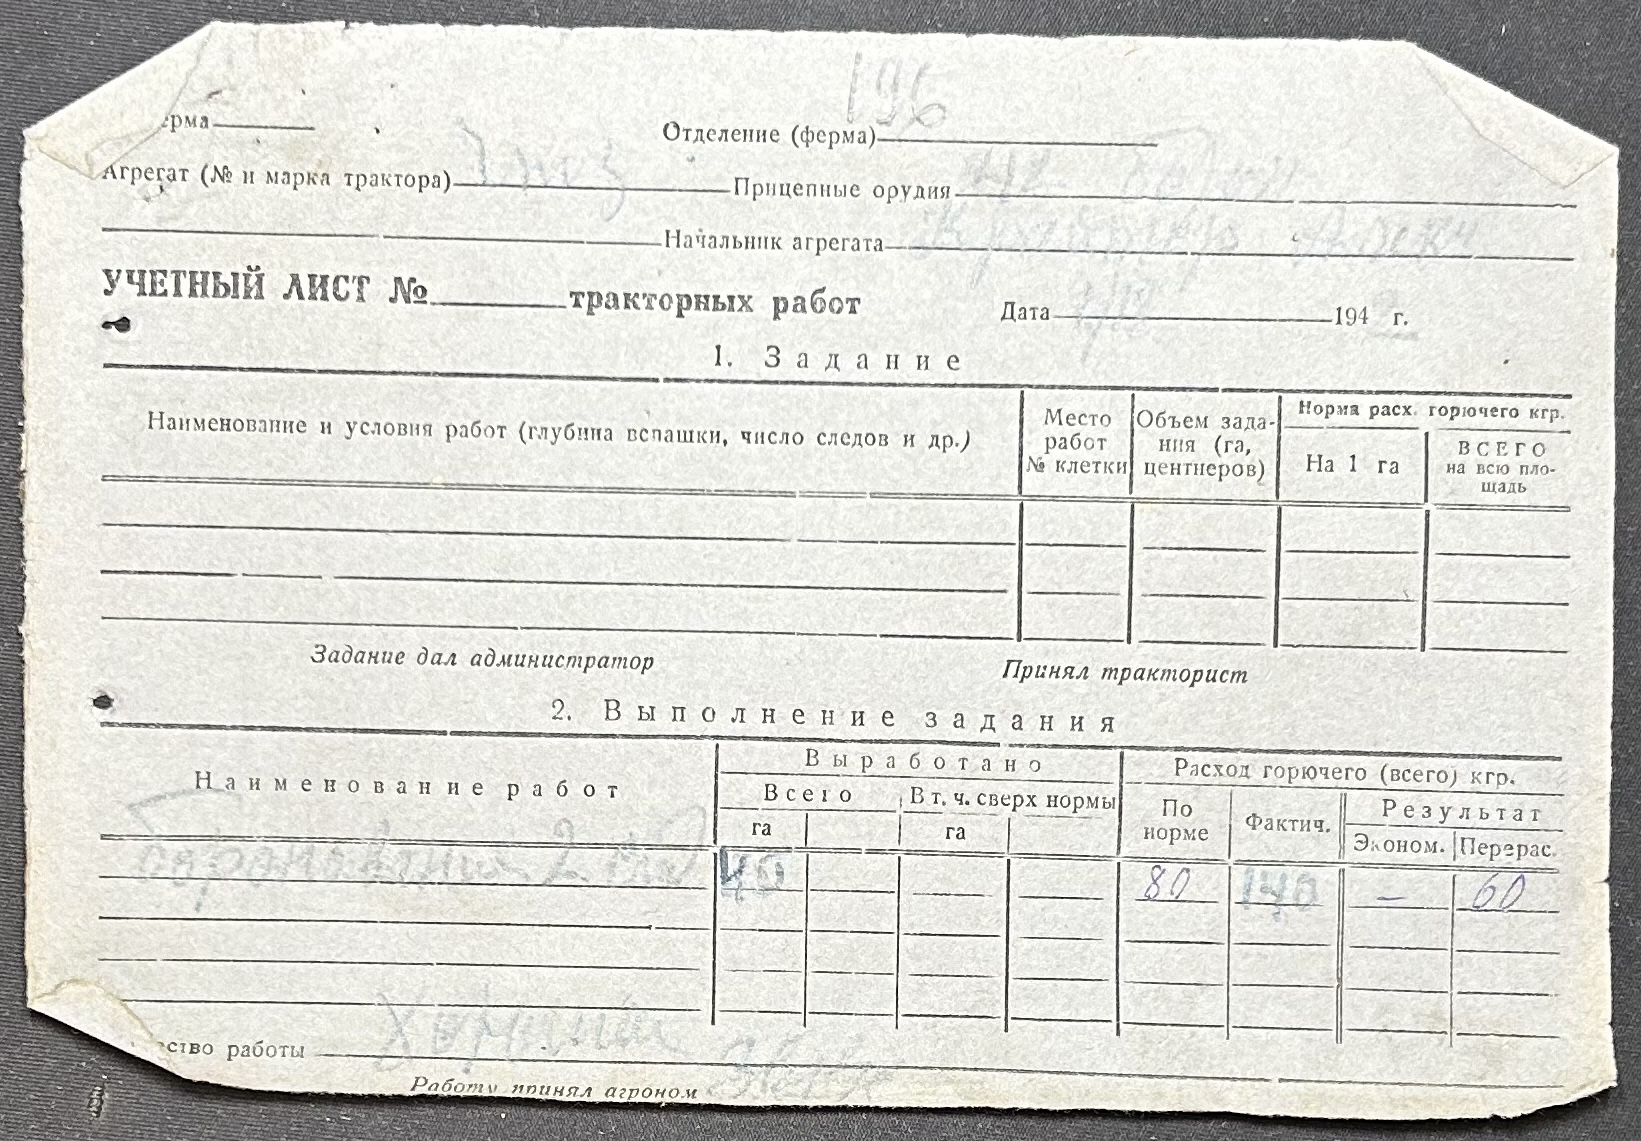 196
ерма
Отделение (ферма)
Агрегат (№ и марка трактора)
Прицепные орудия
Начальник агрегата
УЧЕТНЫЙ ЛИСТ № тракторных работ
Дата 194 г.
1. Задание
Наименование и условия работ (глубина вспашки, число следов и др.)
Место работ № клетки
Объем зада-ния (га, центнеров)
Норма расх. горючего кгр.
На 1 га
ВСЕГО на всю пло-щадь
Задание дал администратор
Принял тракторист
2. Выполнение задания
Наименование работ
Выработано
Расход горючего (всего) кгр.
Всего
В т. ч. сверх нормы
По норме
Фактич.
Результат
га
га
Эконом.
Перерас.
40 80 140 — 60
ество работы
Работу принял агроном